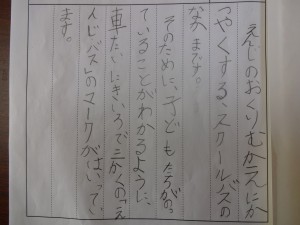 えんじのおくりむかえにか
つやくする、スクールバスの
なかまです。
そのために、子どもたちがの。
ていることがわかるように、
車たいにきいろで三かくの「え
んじバス」のマークがはいってい
ます。